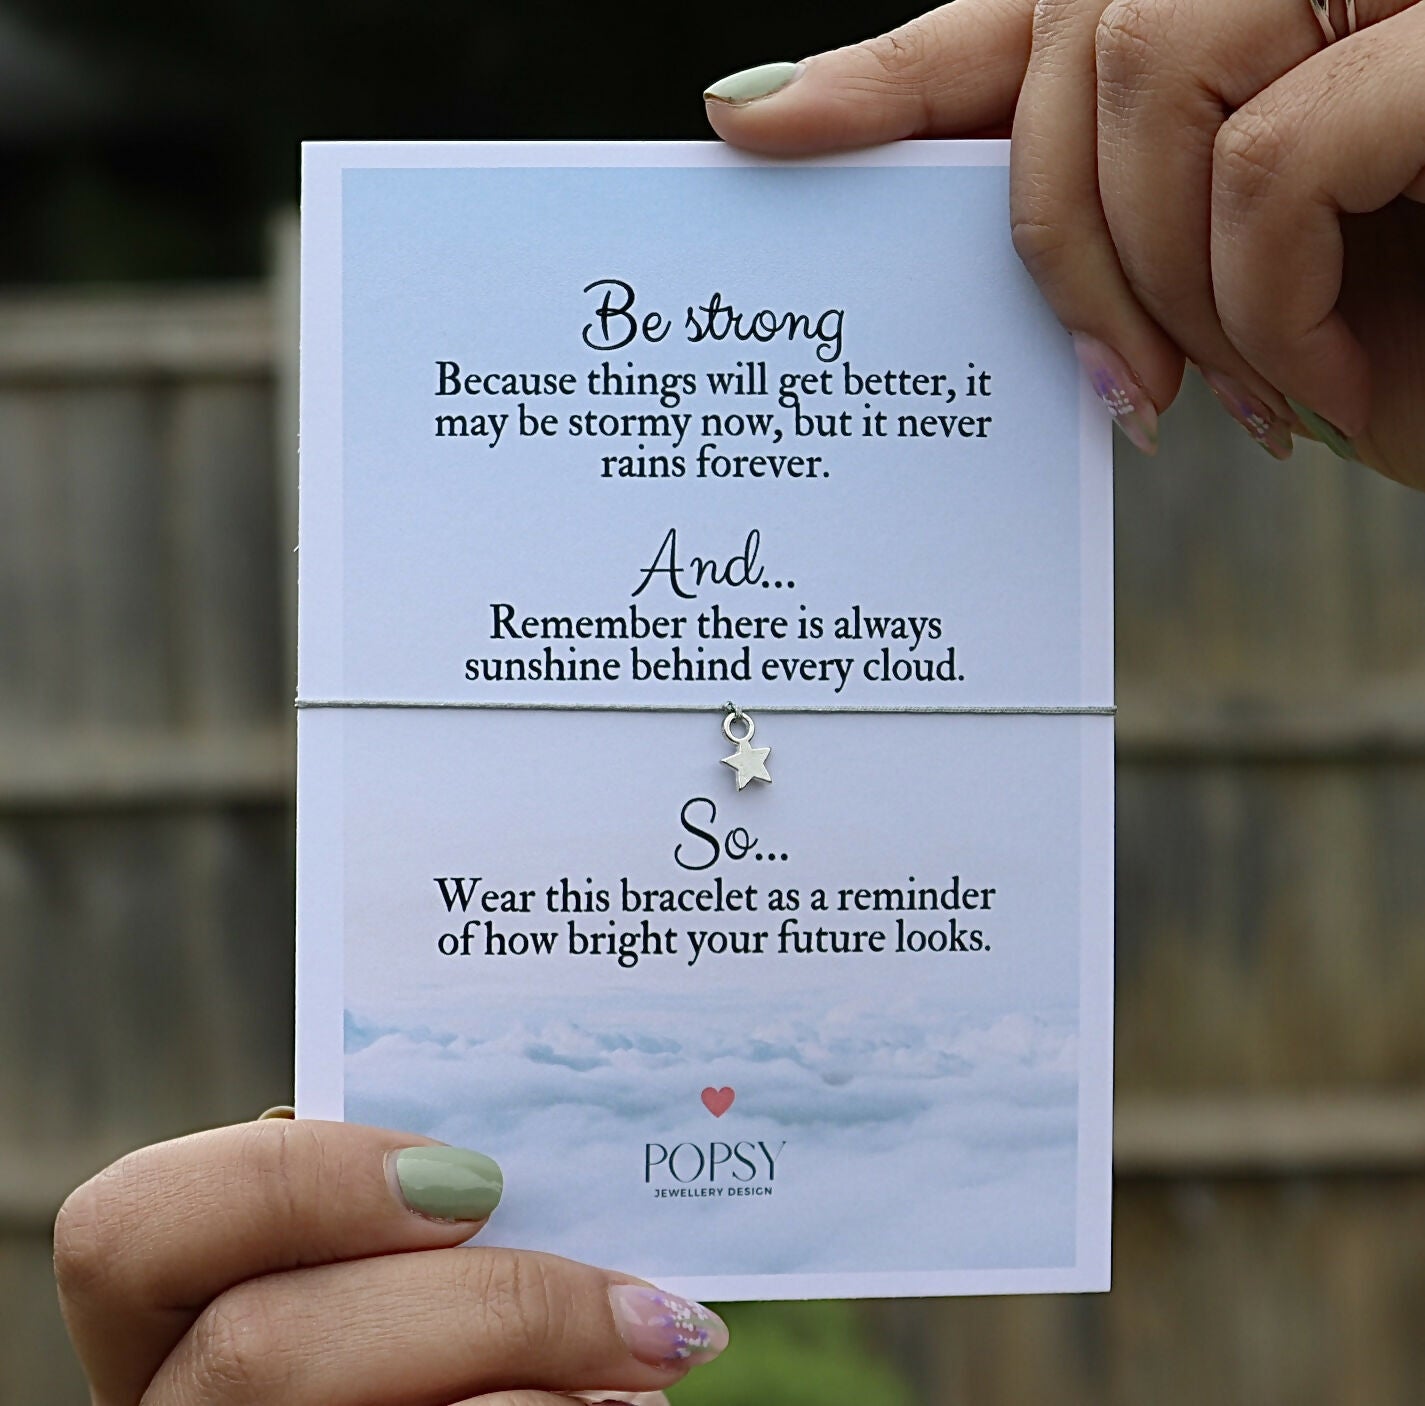 Be strong
Because things will get better, it
may be stormy now, but it never
rains forever.
And...
Remember there is always
sunshine behind every cloud.
So...
Wear this bracelet as a reminder
of how bright your future looks.
POPSY
JEWELLERY DESIGN